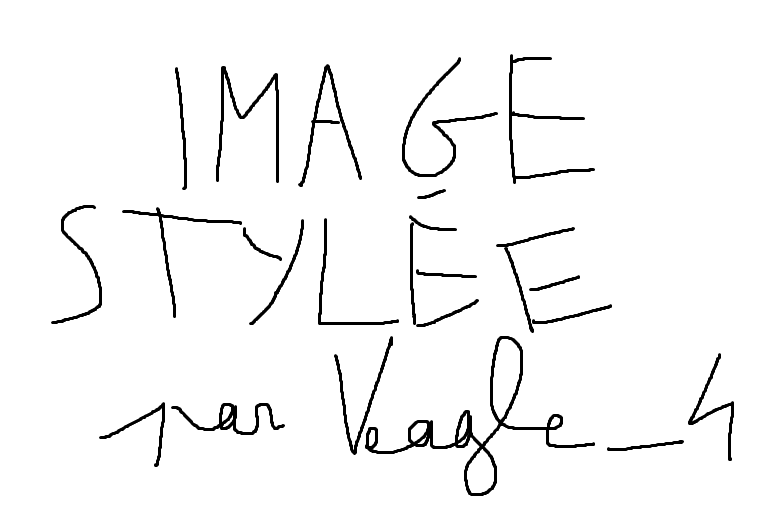 IMAGE
STYLÉE
par Veagle_4